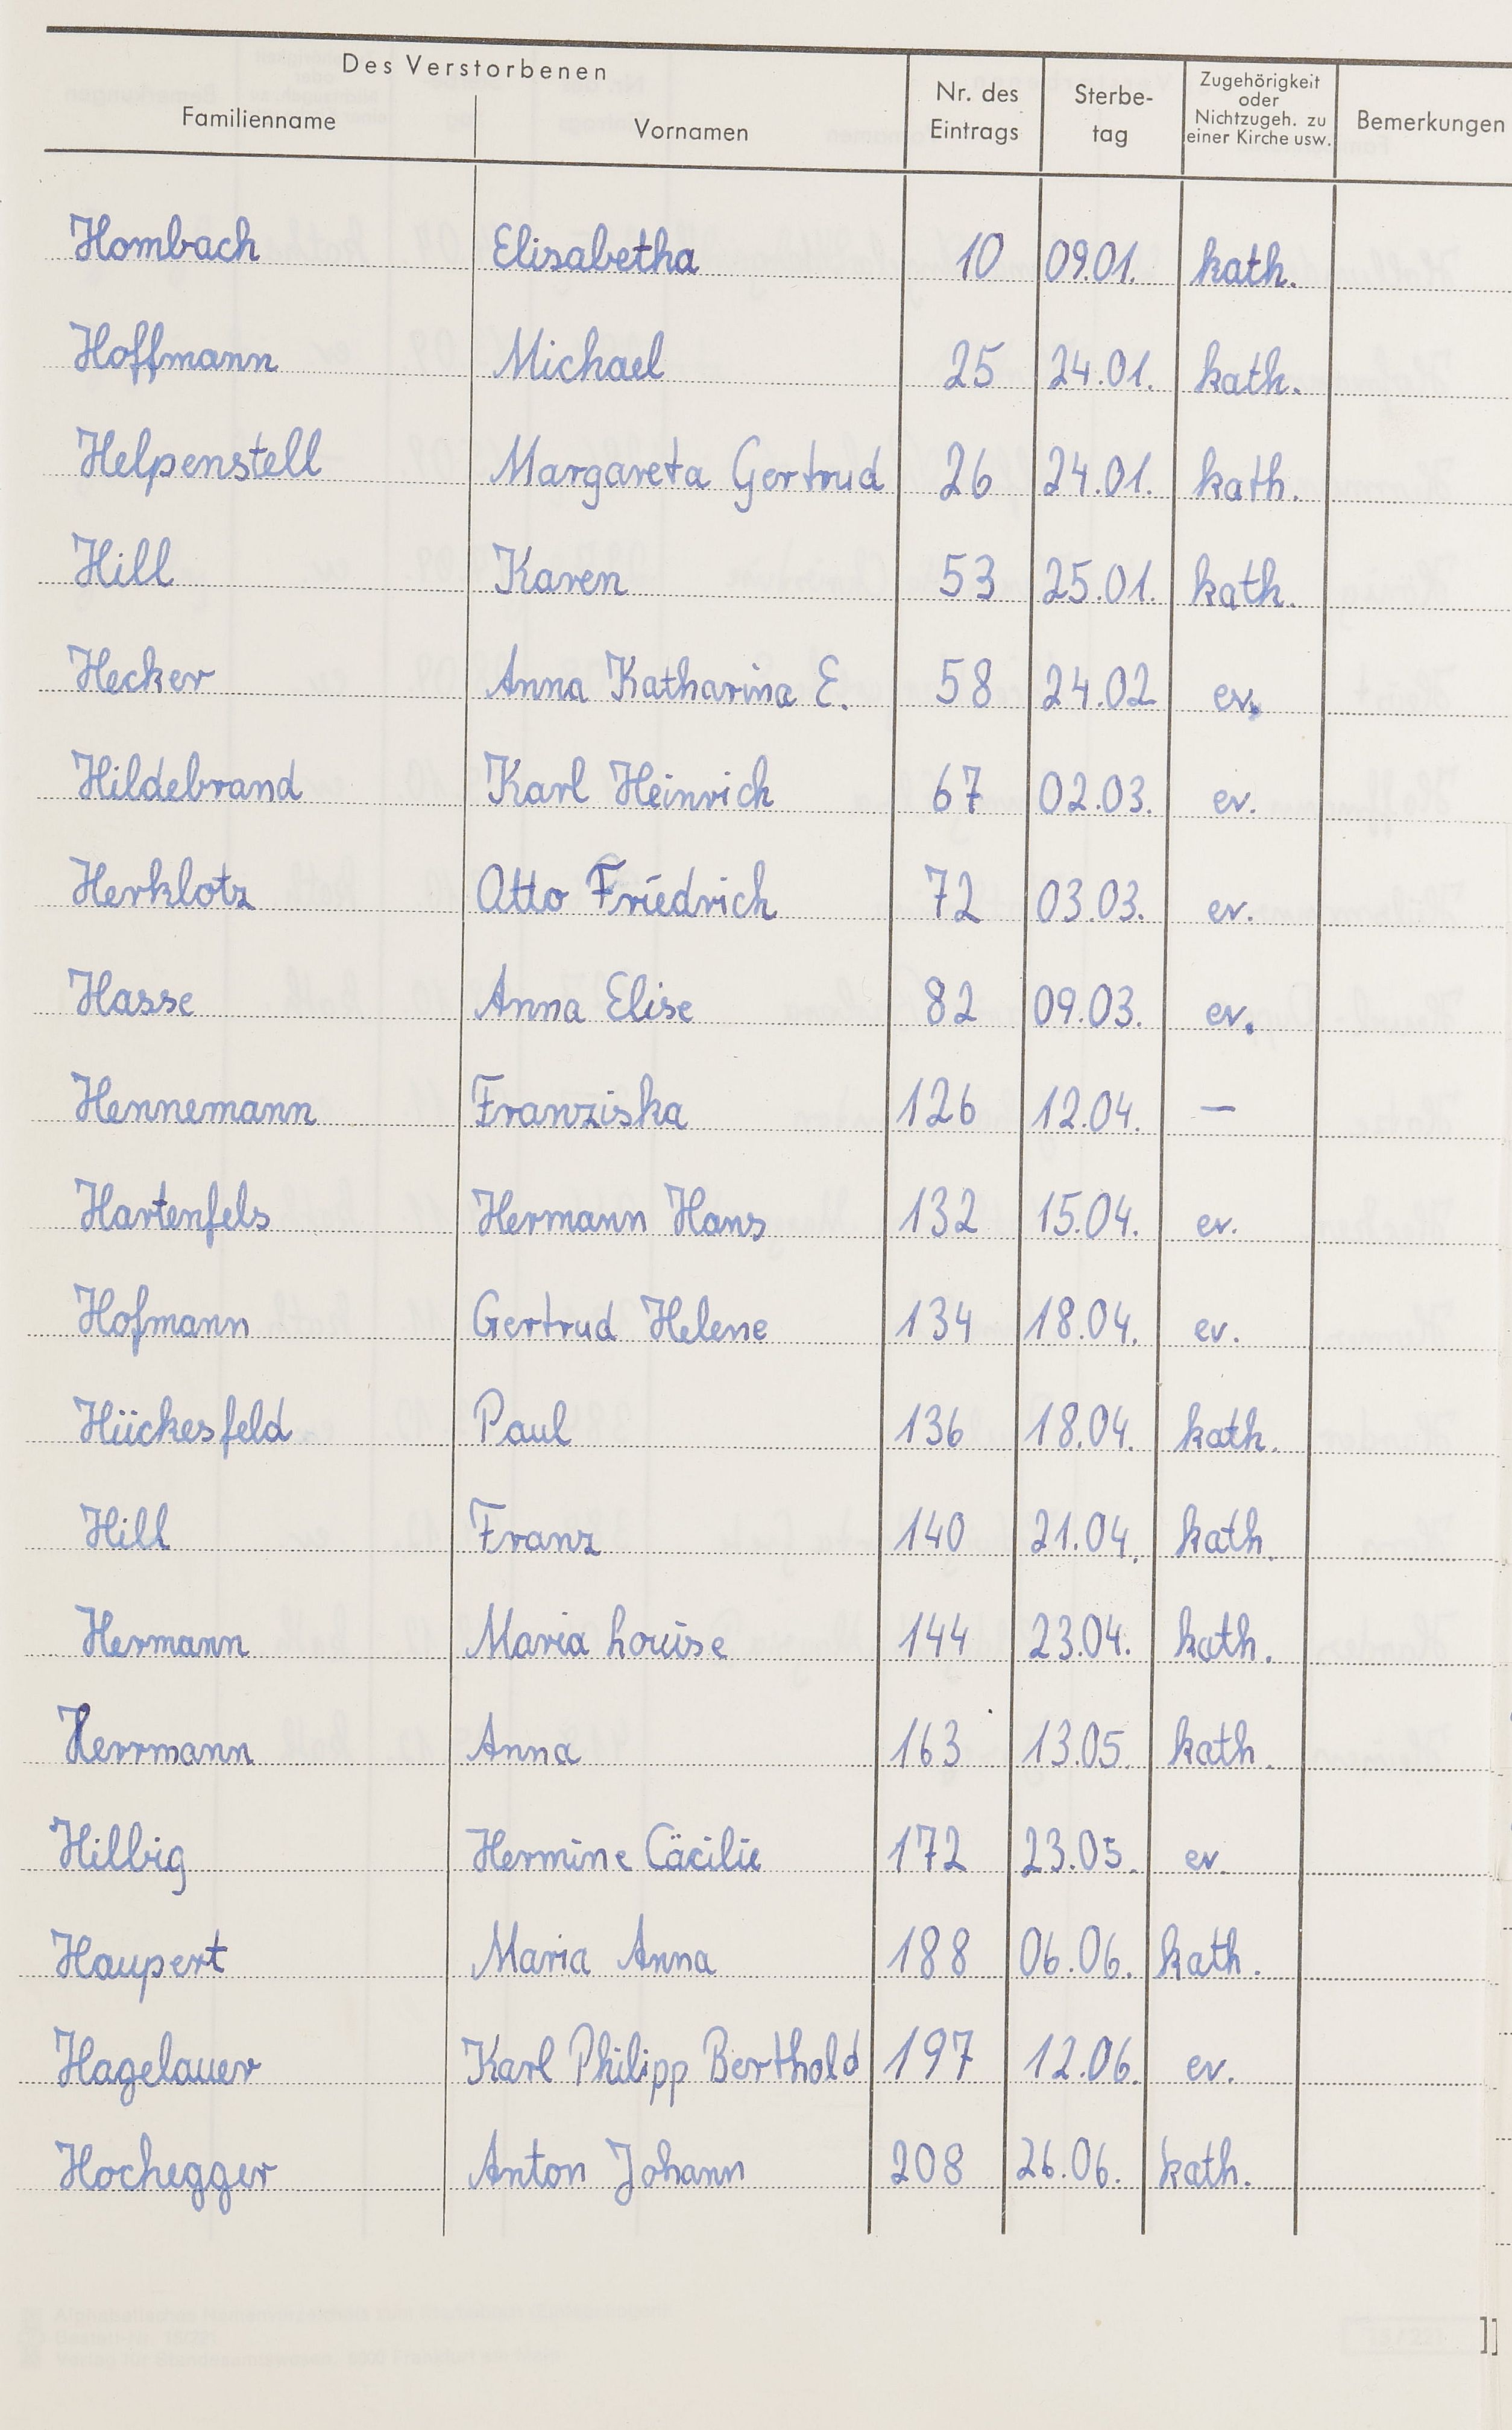 Des Verstorbenen
Familienname Vornamen Nr. des Eintrags Sterbe-tag Zugehörigkeit oder Nichtzugeh. zu einer Kirche usw. Bemerkungen
Hombach Elisabetha 10 09.01. kath.
Hoffmann Michael 25 24.01. kath.
Helpenstell Margareta Gertrud 26 24.01. kath.
Hill Karen 53 25.01. kath.
Hecker Anna Katharina E. 58 24.02 ev.
Hildebrand Karl Heinrich 67 02.03. ev.
Herklotz Otto Friedrich 72 03.03. ev.
Hasse Anna Elise 82 09.03. ev.
Hennemann Franziska 126 12.04. —
Hartenfels Hermann Hans 132 15.04. ev.
Hofmann Gertrud Helene 134 18.04. ev.
Hückesfeld Paul 136 18.04. kath.
Hill Franz 140 21.04. kath.
Hermann Maria Louise 144 23.04. kath.
Herrmann Anna 163 13.05. kath.
Hilbig Hermine Cäcilie 172 23.05. ev.
Haupert Maria Anna 188 06.06. kath.
Hagelauer Karl Philipp Berthold 197 12.06. ev.
Hochegger Anton Johann 208 26.06. kath.